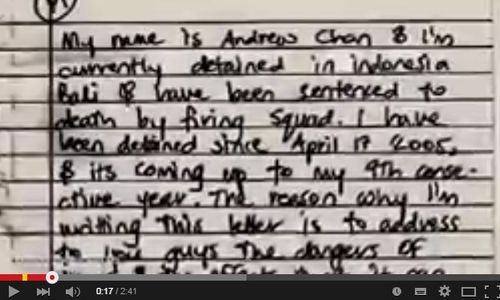 My name is Andrew Chan & I'm
currently detained in indonesia
Bali & have been sentenced to
death by firing squad. I have
been detained since April 17 2005,
& its coming up to my 9th conse-
ctive year. The reason why I'm
writing this letter is to address
to you guys the dangers of
0:17 / 2:41